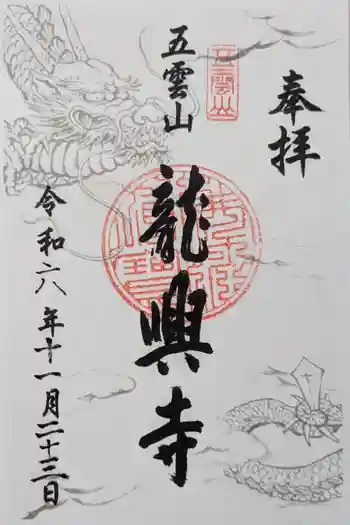 奉拝
五雲山
五雲山
龍興寺
令和六年十一月二十三日